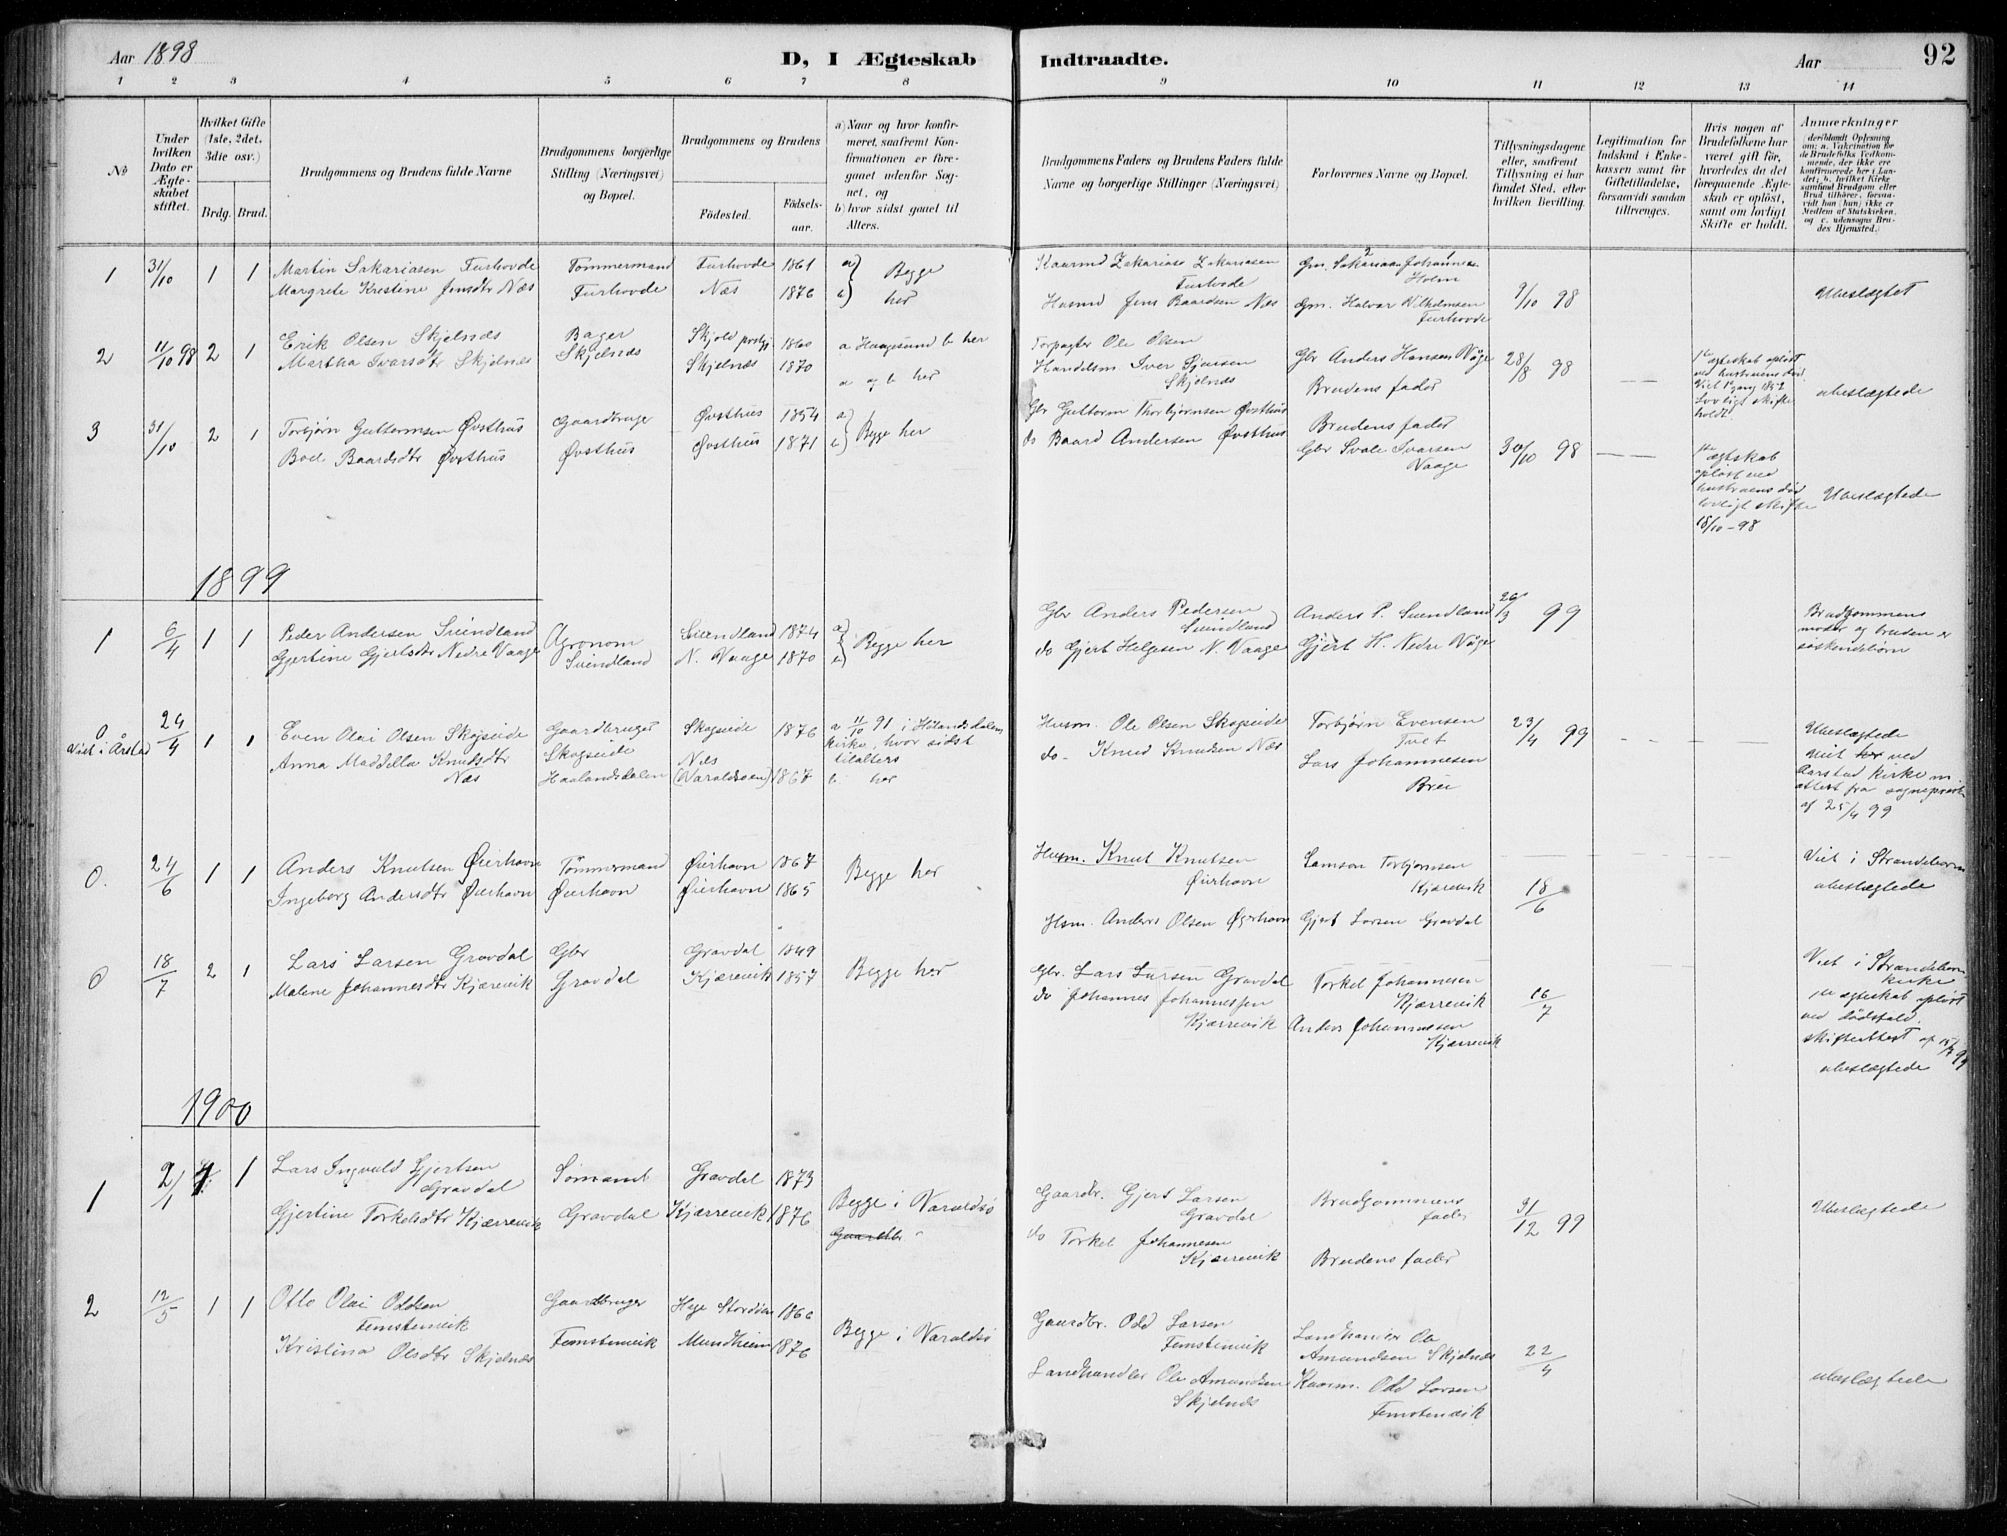 Aar 1898
D, I Ægteskab Indtraadte.
Aar
92
1 2 3 4 5 6 7 8 9 10 11 12 13 14
No
Under hvilken Dato er Ægteskabet stiftet.
Hvilket Gifte (1ste, 2det, 3die osv.)
Brdg. Brud.
Brudgommens og Brudens fulde Navne
Brudgommens borgerlige Stilling (Næringsvei) og Bopæl.
Brudgommens og Brudens
Födested. Födsels-aar.
a) Naar og hvor konfirmeret, saafremt Konfirmationen er foregaaet udenfor Sognet, og
b) hvor sidst gaaet til Alters.
Brudgommens Faders og Brudens Faders fulde Navne og borgerlige Stillinger (Næringsvei)
Forlovernes Navne og Bopæl.
Tillysningsdagene eller, saafremt Tillysning ei har fundet Sted, efter hvilken Bevilling.
Legitimation for Indskud i Enkekassen samt for Giftetilladelse, forsaavidt saadan tiltrænges.
Hvis nogen af Brudefolkene har været gift før, hvorledes da det foregaaende Ægteskab er opløst, samt om lovligt Skifte er holdt.
Anmærkninger (deriblandt Oplysning om: a. Vakcination for de Brudefolks Vedkommende, der ikke ere konfirmerede her i Landet; b. hvilket Kirkesamfund Brudgom eller Brud tilhører, forsaavidt han (hun) ikke er Medlem af Statskirken, og c. udensogns Brudes Hjemsted.)
1 31/10 1 1 Martin Sakariasen Furhovde Tømmermand Furhovde 1861 a) Begge
Margrete Kristine Jensdtr Næs Furhovde Næs 1876 b) her
Kaarmd Zakarias Zakariasen Furhovde
Husmd Jens Baardsen Næs
Gm. Sakarias Johannesen Holm
Gm. Halvar Vilhelmsen Furhovde
9/10 98
Ubeslægtet
2 11/10 98 2 1 Erik Olsen Skjelnæs Bager Skjold prstgj 1860 a Haugesund b her
Martha Ivarsdtr Skjelnæs Skjelnæs Skjelnæs 1870 a og b her
Forpagter Ole Olsen
Handelsm. Iver Sjursen Skjelnæs
Gbr Anders Hansen Våge
Brudens fader
28/8 98
— —
1te ægteskab opløst ved hustruens død Viet 1ste gang 1852 Lovligt skifte holdt.
ubeslægtede
3 31/10 2 1 Torbjørn Guttormsen Øvsthus Gaardbruger Øvsthus 1854 a)
Boel Baardsdtr Øvsthus Øvsthus Øvsthus 1871 b) Begge her
Gbr Guttorm Thorbjørnsen Øvsthus
do Baard Andersen Øvsthus
Brudens fader
Gbr Svale Ivarsen Vaage
30/10 98
— —
1te ægteskab opløst ved hustruens død lovligt skifte 18/10 - 98
Ubeslægtede
1899
1 6/4 1 1 Peder Andersen Suindland Agronom Suendland 1874 a)
Gjertine Gjertsdtr Nedre Vaage Svindland N. Vaage 1870 b) Begge her
Gbr Anders Pedersen Suindland
do Gjert Helgesen N. Vaage
Anders P. Suendland
Gjert H. Nedre Våge
26/3 99
Brudgommens moder og bruden er søskendebørn
0 Viet i Årstad 24/4 1 1 Even Olai Olsen Skogseide Gaardbruger Skogseide 1876
Anna Maddella Knudsdtr Næs
Skogseide Haalandsdalen
Næs (Varaldsøen) 1867
a 11/10 91 i Hålandsdalen kirke, hvor sidst tilalters
b. her
Husm. Ole Olsen Skogseide
do- Knud Knudsen Næs
Torbjørn Evensen Tvet
Lars Johannesen Brei
23/4 99
Ubeslægtede
Viet her ved Aarstad kirke m. attest fra sogneprest af 25/4 99
0. 24/6 1 1 Anders Knutsen Øierhavn Tømmermand Øierhavn 1867
Ingeborg Andersdtr Øierhavn Øierhavn Øierhavn 1865 Begge her
Husm. Knut Knutsen Øierhavn
Hsm. Anders Olsen Øyerhavn
Samson Torbjørnsen Kjærevik
Gjert Larsen Gravdal
18/6
Viet i Strandebarm
ubeslægtede
0 18/7 2 1 Lars Larsen Gravdal Gbr Gravdal 1849
Malene Johannesdtr Kjærevik Gravdal Kjærevik 1857 Begge her
Gbr. Lars Larsen Gravdal
do Johannes Johannessen Kjærrevik
Torkel Johannesen Kjærrevik
Anders Johannesen Kjærrevik
16/7
Viet i Strandebarm kirke
1te ægteskab opløst ved dødsfald.
skifteattest af 15/7 99
ubeslægtede
1900
1 2/1 1 1 Lars Ingvald Gjertsen Gravdal Sømand Gravdal 1873
Gjertine Torkelsdtr Kjærrevik Gravdal Kjærrevik 1876 Begge i Varaldsø
Gaardbr
Gaardbr. Gjert Larsen Gravdal
do Torkel Johannesen Kjærrevik
Brudgommens fader
Brudens fader
31/12 99
Ubeslægtede
2 12/5 1 1 Otto Olai Oddsen Femstenevik Gaardbruger Høje Stordøen 1860
Kristina Olsdtr Skjelnæs Femstenevik Mundheim 1876 Begge i Varaldsø
Gaardbr. Odd Larsen Femstenvik
Landhandler Ole Amundsen Skjelnæs
Landhandler Ole Amundsen Skjelnæs
Kaarm. Odd Larsen Femstenvik
22/4
ubeslægtede